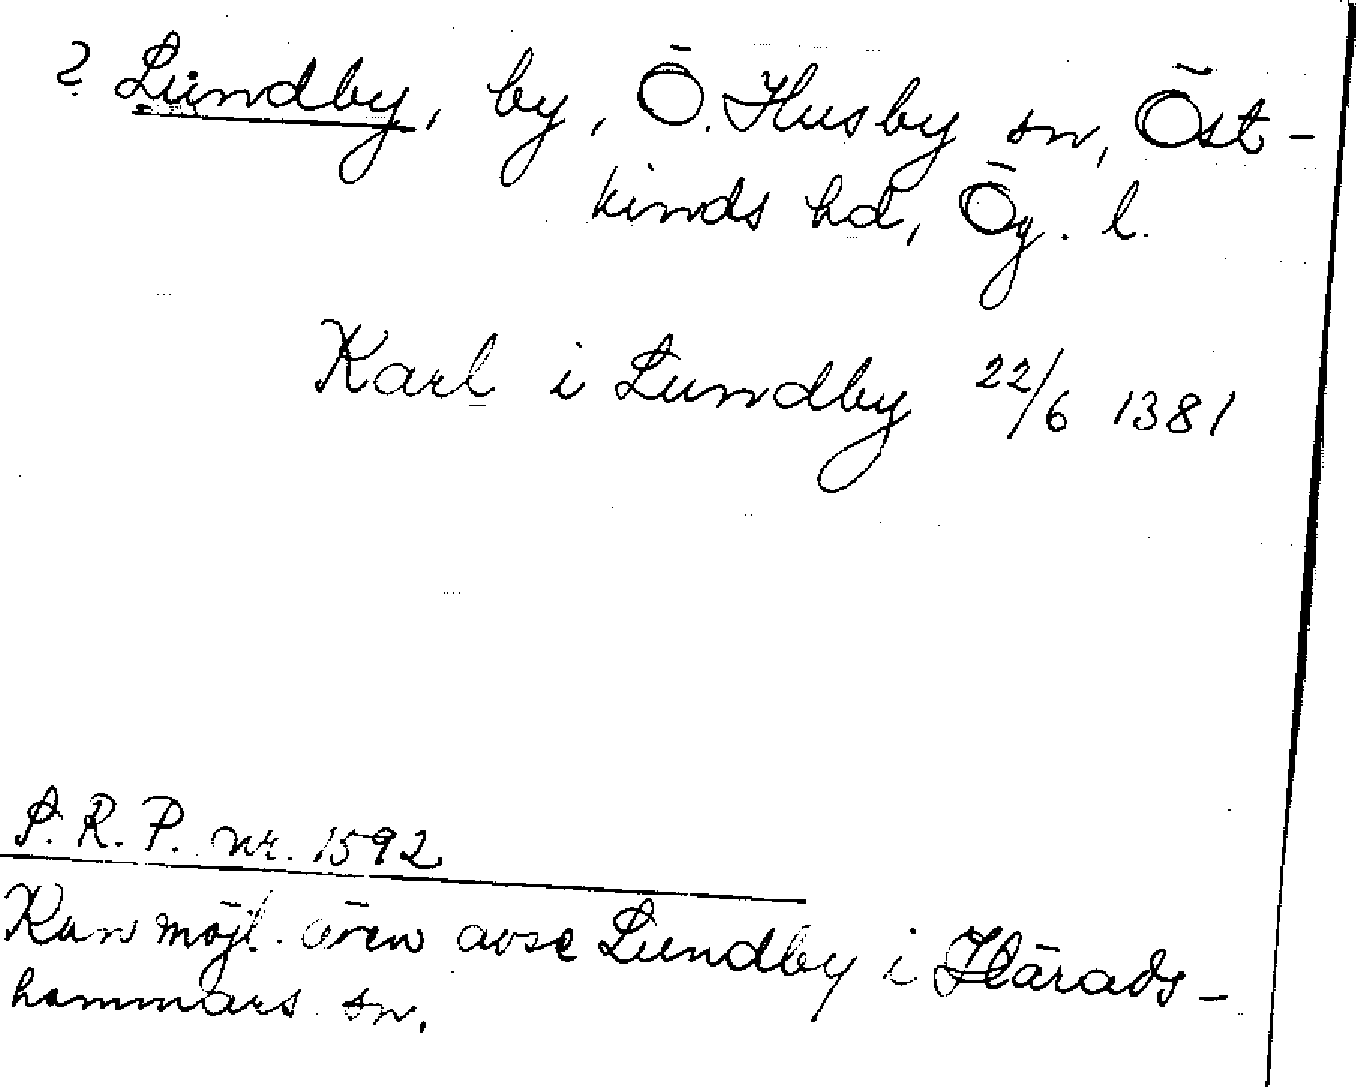 ? Lundby, by, Ö. Husby sn, Öst-
kinds hd, Ög. l.
Karl i Lundby 22/6 1381
S. R. P. nr. 1592
Kan möjl. även avse Lundby i Härads-
hammars sn.